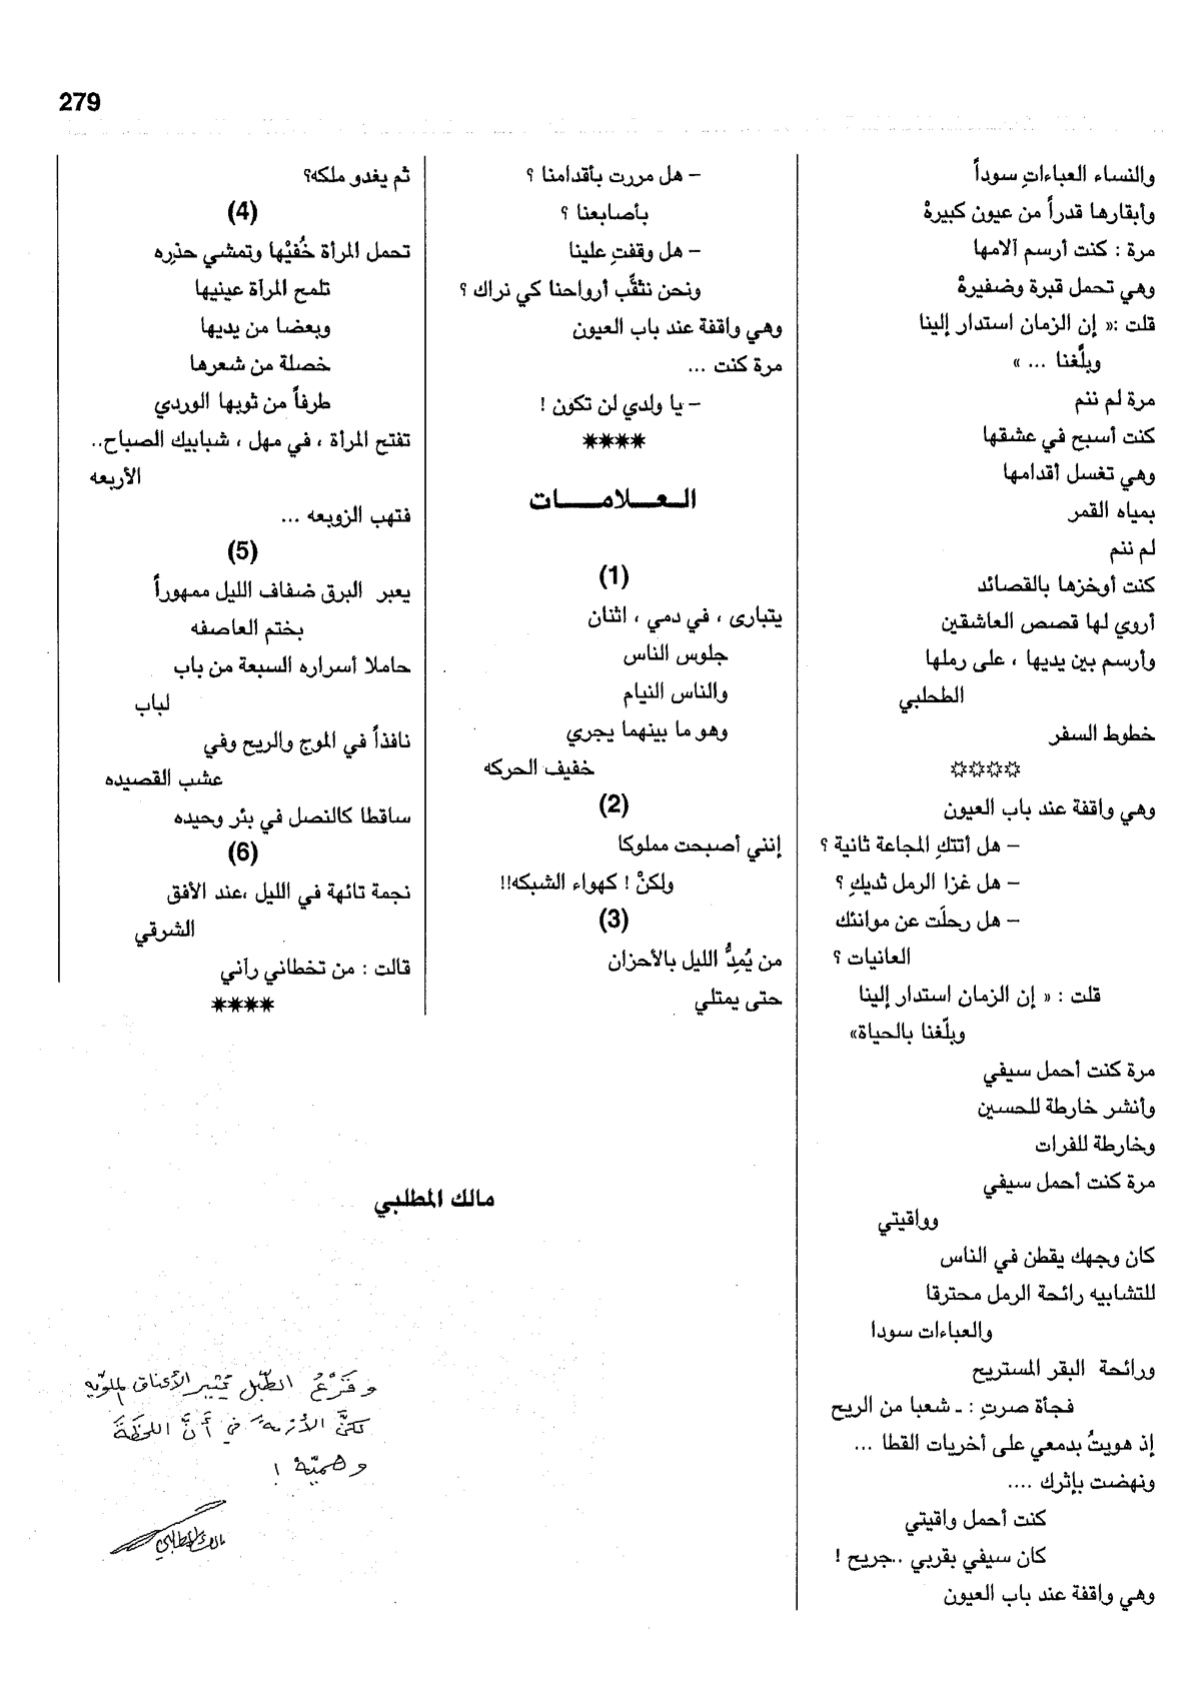 279
والنساء العباءاتِ سوداً
وأبقارها قدراً من عيون كبيرهْ
مرة : كنت أرسم آلامها
وهي تحمل قبرة وضفيرهْ
قلت :« إن الزمان استدار إلينا
وبلَّغنا ... »
مرة لم ننم
كنت أسبح في عشقها
وهي تغسل أقدامها
بمياه القمر
لم ننم
كنت أوخزها بالقصائد
أروي لها قصص العاشقين
وأرسم بين يديها ، على رملها
الطحلبي
خطوط السفر
☼☼☼☼
وهي واقفة عند باب العيون
– هل أتتكِ المجاعة ثانية ؟
– هل غزا الرمل ثديكِ ؟
– هل رحلَت عن موانئك
العانيات ؟
قلت : « إن الزمان استدار إلينا
وبلّغنا بالحياة»
مرة كنت أحمل سيفي
وأنشر خارطة للحسين
وخارطة للفرات
مرة كنت أحمل سيفي
وواقيتي
كان وجهك يقطن في الناس
للتشابيه رائحة الرمل محترقا
والعباءات سودا
ورائحة البقر المستريح
فجأة صرتِ : ـ شعبا من الريح
إذ هويتُ بدمعي على أخريات القطا ...
ونهضت بإثرك ....
كنت أحمل واقيتي
كان سيفي بقربي ..جريح !
وهي واقفة عند باب العيون
– هل مررت بأقدامنا ؟
بأصابعنا ؟
– هل وقفتِ علينا
ونحن نثقِّب أرواحنا كي نراك ؟
وهي واقفة عند باب العيون
مرة كنت ...
– يا ولدي لن تكون !
✷✷✷✷
العـلامـــات
(1)
يتبارى ، في دمي ، اثنان
جلوس الناس
والناس النيام
وهو ما بينهما يجري
خفيف الحركه
(2)
إنني أصبحت مملوكا
ولكنْ ! كهواء الشبكه!!
(3)
من يُمِدُّ الليل بالأحزان
حتى يمتلي
ثم يغدو ملكه؟
(4)
تحمل المرأة خُفيْها وتمشي حذِره
تلمح المرآة عينيها
وبعضا من يديها
خصلة من شعرها
طرفاً من ثوبها الوردي
تفتح المرأة ، في مهل ، شبابيك الصباح..
الأربعه
فتهب الزوبعه ...
(5)
يعبر البرق ضفاف الليل ممهوراً
بختم العاصفه
حاملا أسراره السبعة من باب
لباب
نافذاً في الموج والريح وفي
عشب القصيده
ساقطا كالنصل في بئر وحيده
(6)
نجمة تائهة في الليل ،عند الأفق
الشرقي
قالت : من تخطاني رآني
✷✷✷✷
مالك المطلبي
وقَرْعُ الطّبل يثير الأعناق الملويّه
لكنَّ الأزمةَ في أَنَّ اللحظَةَ
وهميّة !
مالك المطلبي